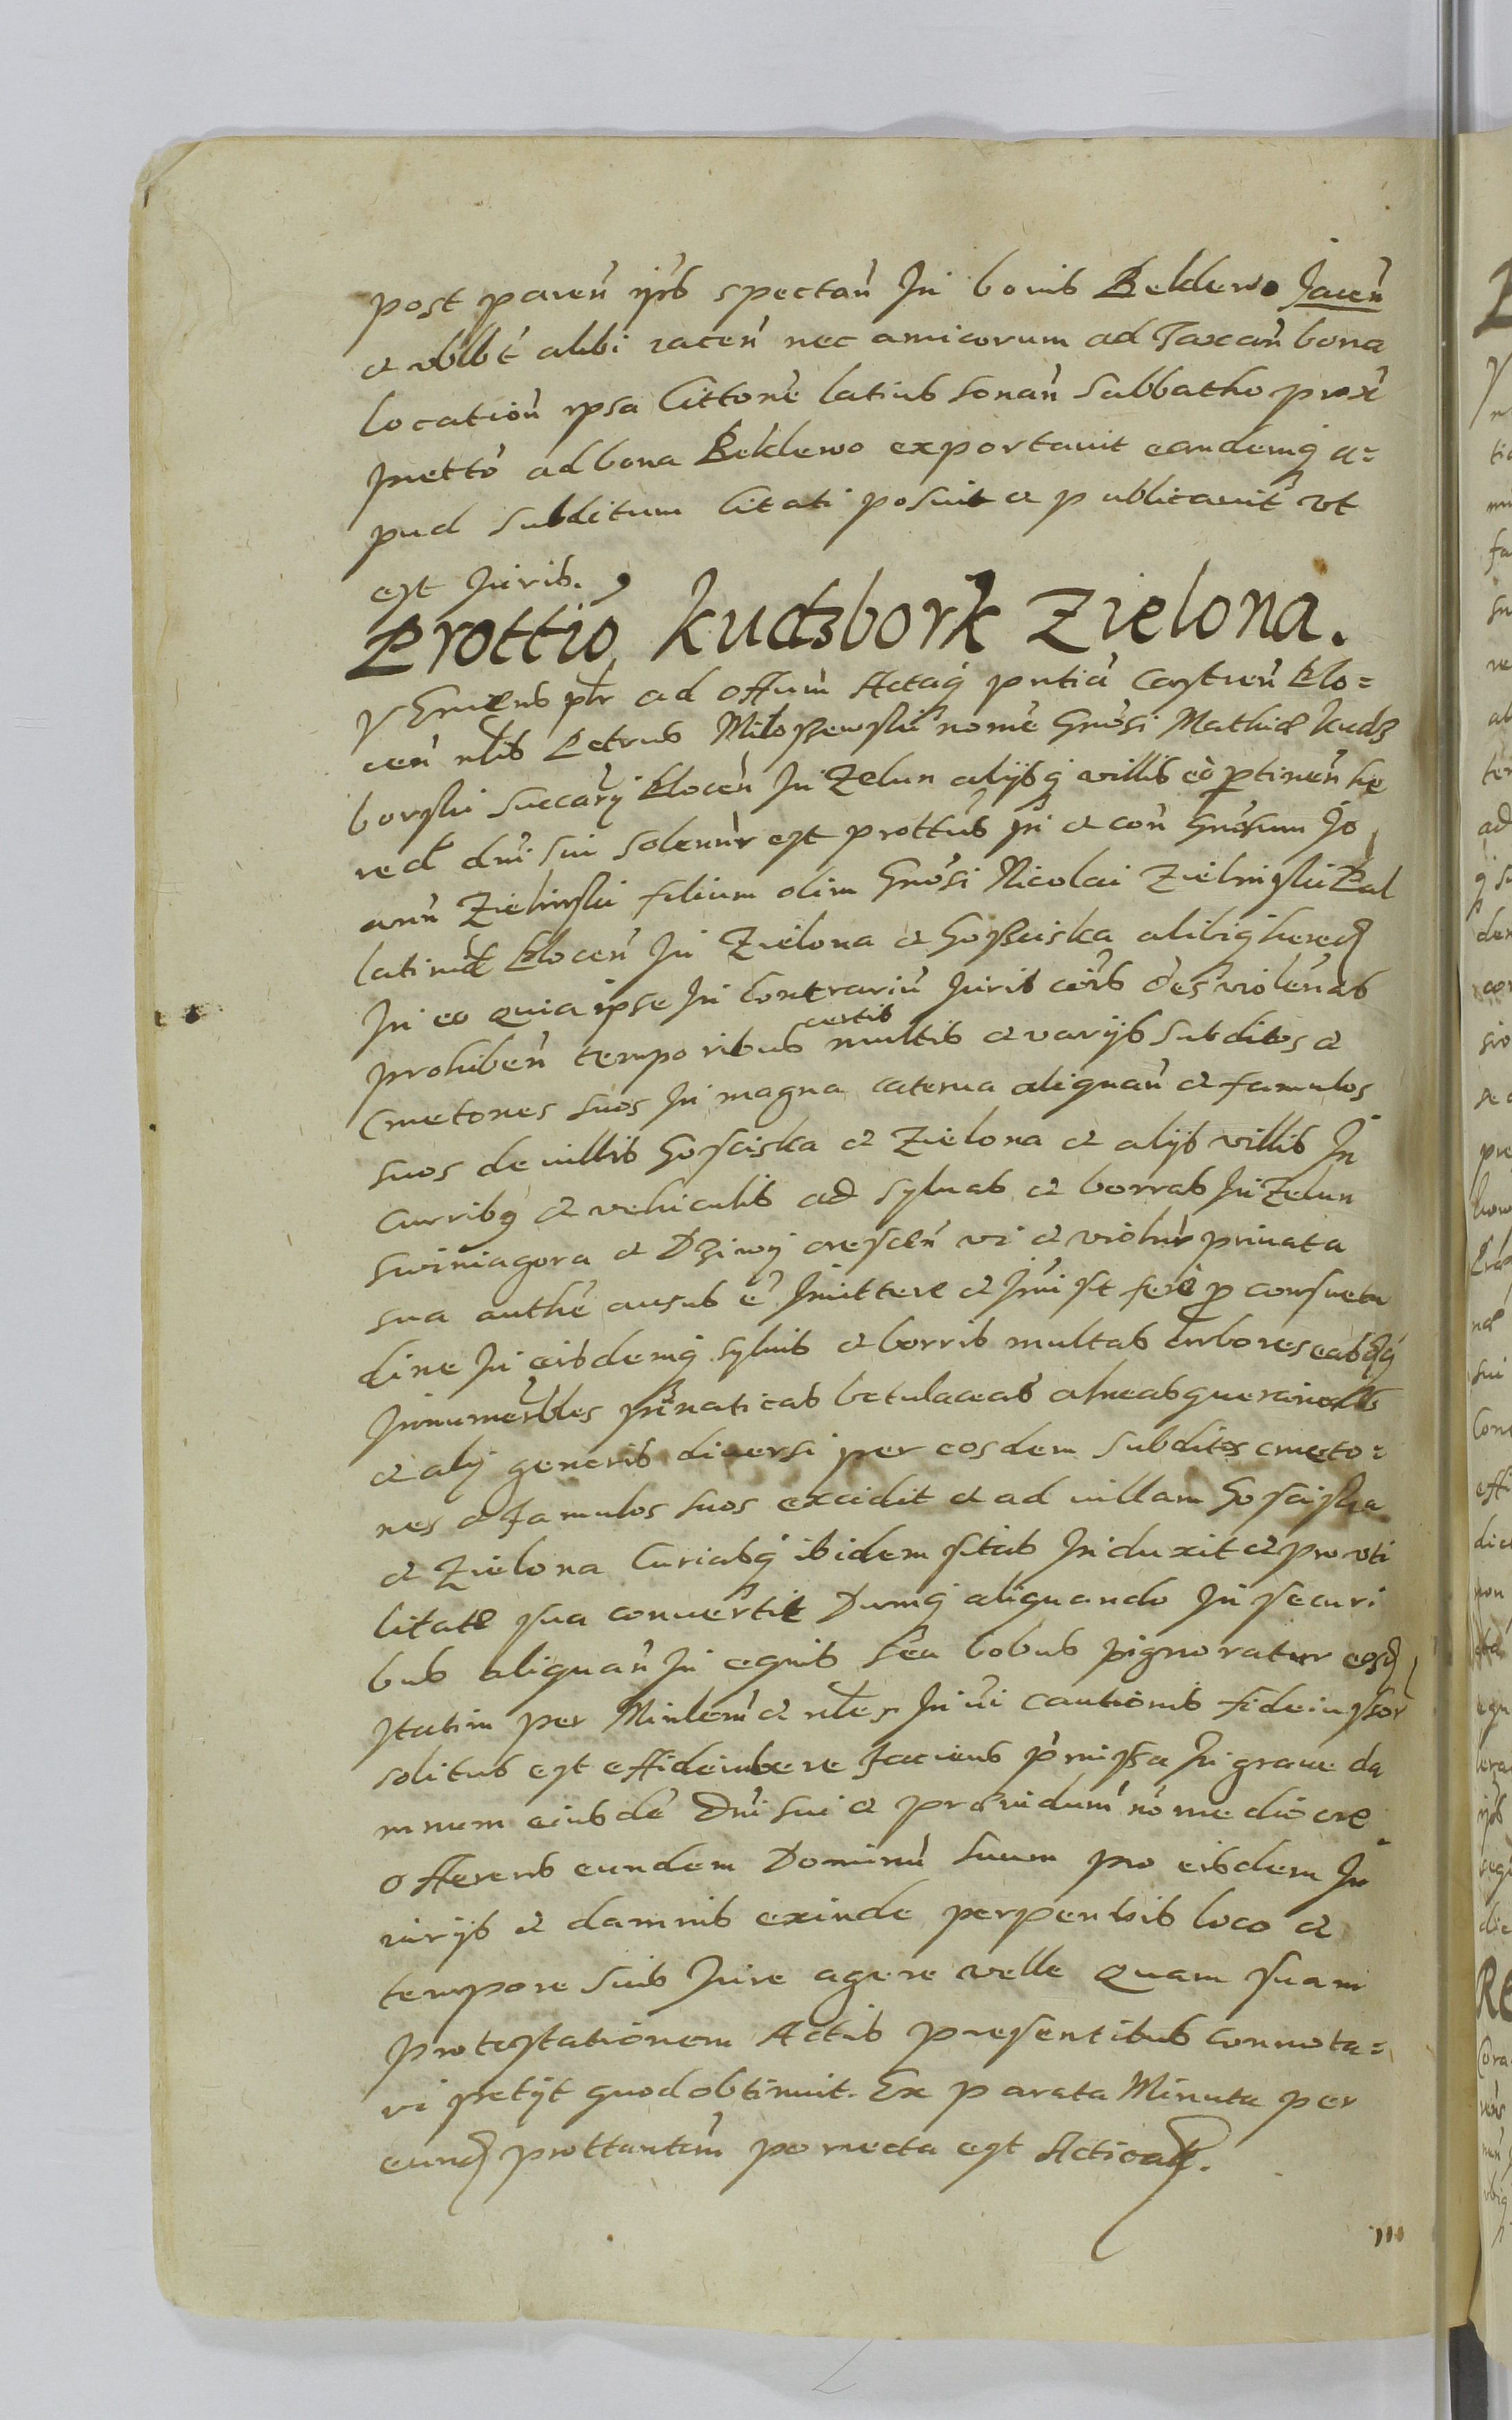 post paren ijs spectan In bonis Beldewo Jacen
et vbilbt alibi iacen nec amicorum ad Taxan bona
location ipsa Cittone latius sonan Sabbatho prox
pretto ad bona Beldewo exportauit eandemq a=
pud subditum Citati posuit et publicauit vt
est Juris.
Prottio Kudzbork Zielona.
VEniens plr ad Offum Actaq pntia Castren Plo=
cen nlis Petrus Miloszewski nome Gnosi Mathiæ Kudz
borski Succarij Plocen In Zelun alijsq villis eò ptinen hę
red dni sui solennr est prottus in et con Gnosum Jo
ann Zielinski filium olim Gnosi Nicolai Zielinski Pal
latinid Plocen In Zielona et Gosciska alibiq hered
In eo quia ipse In Contrariu Juris cois oes violencias
prohiben temporibus certis multis et varijs subditos et
Cmetones suos In magna caterua aliquan et famulos
suos de villis Gosciska et Zielona et alijs villis In
Curribq et vehiculis ad syluas et borras In Zelun
Swiniagora et Dziwy crescen vi et violnr priuata
sua authe ausus e Imittere et Imist ferè p consuetu
dine In eisdemq syluis et borris multas arbores easdq
Innumerbles pineaticas betulaceas alneas
et alij generis diuersi per eosdem subditos cmeto=
nes et famulos suos excidit et ad villam Gosciska
et Zielona Curiasq ibidem sitas Induxit et pro vti
litate sua conuertit Dumq aliquando In securi
bus aliquan In equis seu bobus pignoratur eosd
statim per Minlem et nles In vi cautionis fideiussor
solitus est effideiubere faciens pmissa In graue da
mnum eiusde Dni sui et nò mediocre
Offerens eundem Dominu suum pro eisdem In
iurijs et damnis exinde perpensis loco et
tempore suis Jure agere velle Quam suam
protestationem Actis presentibus connota=
ri petijt quod obtinuit. Ex parata Minuta per
eund prottantem porrecta est